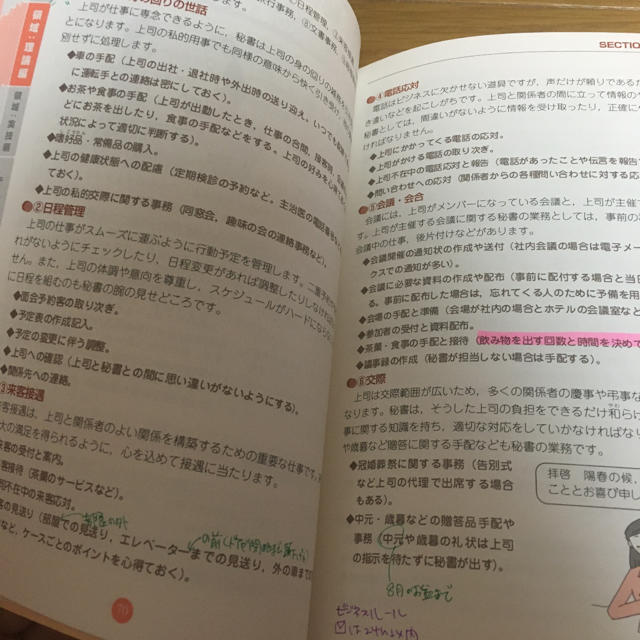 領域：理論編
領域：実技編
身の回りの世話
上司が仕事に専念できるように、秘書は上司の身の回りの雑務を
とになります。上司の私的用事でも同様の意味から快く引き受け
別せずに処理します。
◆車の手配（上司の出社・退社時や外出時の送り迎え。いつでも
に運転手との連絡は密にしておく）。
◆お茶や食事の手配（上司が出勤したとき、仕事の合間、接客時、
どにお茶を出したり、食事の手配などをする。上司の好みを
状況によって適切に判断する）。
◆嗜好品・常備品の購入。
◆上司の健康状態への配慮（定期検診の予約など。主治医の電話番号
ておく）。
◆上司の私的交際に関する事務（同窓会、趣味の会の連絡事務など）。
②日程管理
上司の仕事がスムーズに運ぶように行動予定を管理します。二重予約
れがないようにチェックしたり、日程変更があれば調整したりしなければ
せん。また、上司の体調や意向を尊重し、スケジュールがハードにならな
に日程を組むのも秘書の腕の見せどころです。
◆面会予約客の取り次ぎ。
◆予定表の作成記入。
◆予定の変更に伴う調整。
◆上司への確認（上司と秘書との間に思い違いがないようにする）。
◆関係先への連絡。
③来客接遇
客接遇は、上司と関係者のよい関係を構築するための重要な仕事です。
大の満足を得られるように、心を込めて接遇に当たります。
来客の受付と案内。
客接待（茶菓のサービスなど）。
司不在中の来客応対。
客の見送り（部屋での見送り、エレベーターまでの見送り、外の車まで
など、ケースごとのポイントを心得ておく）。
70
SECTION
④電話応対
電話はビジネスに欠かせない道具ですが、声だけが頼りである
き違いなどを起こしがちです。上司と関係者の間に立って情報の
秘書としては、間違いがないように情報を受け取ったり、正確に
ければなりません。
◆上司にかかってくる電話の応対。
◆上司がかける電話の取り次ぎ。
◆上司不在中の電話応対と報告（電話があったことや伝言を報告
◆問い合わせへの応対（関係者からの各種問い合わせに対する応
⑤会議・会合
会議には、上司がメンバーになっている会議と、上司が主催す
す。上司が主催する会議に関する秘書の業務としては、事前の
会議中の仕事、後片付けなどがあります。
◆会議開催の通知状の作成や送付（社内会議の場合は電子メー
クスでの通知が多い）。
◆会議に必要な資料の作成や配布（事前に配付する場合と当日
る。事前に配布した場合は、忘れてくる人のために予備を用
◆会場の手配と準備（会場が社内の場合とホテルの会議室など
◆参加者の受付と資料配布。
◆茶菓・食事の手配と接待（飲み物を出す回数と時間を決めて
◆議事録の作成（秘書が担当しない場合は手配する）。
⑥交際
上司は交際範囲が広いため、多くの関係者の慶事や弔事な
なります。秘書は、そうした上司の負担をできるだけ和らげ
事に関する知識を持ち、適切な対応をしていかなければなり
や歳暮など贈答に関する手配なども秘書の業務です。
◆冠婚葬祭に関する事務（告別式
など上司の代理で出席する場合
もある）。
◆中元・歳暮などの贈答品手配や
事務（中元や歳暮の礼状は上司
の指示を待たずに秘書が出す）。
拝啓　陽春の候、
こととお喜び申し
ビジネスルール